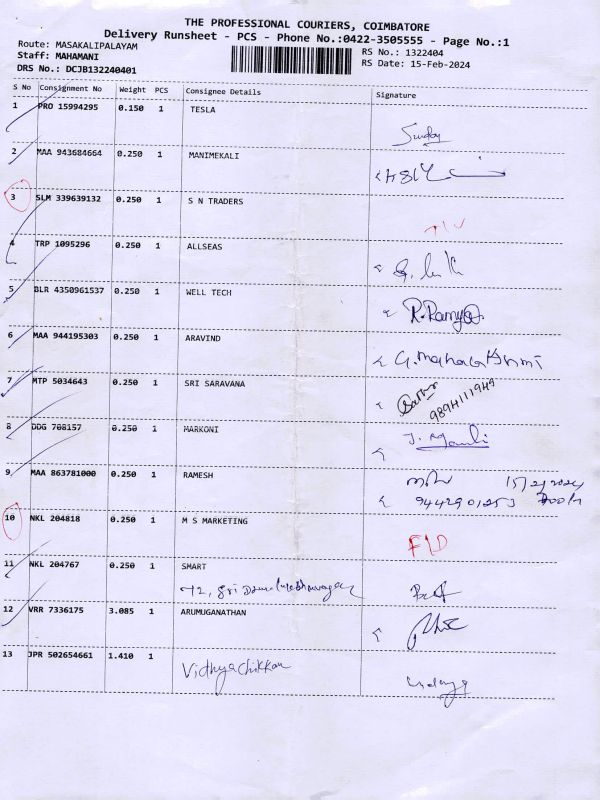 THE PROFESSIONAL COURIERS, COIMBATORE
Delivery Runsheet - PCS - Phone No.:0422-3505555 - Page No.:1
Route: MASAKALIPALAYAM RS No.: 1322404
Staff: MAHAMANI RS Date: 15-Feb-2024
DRS No.: DCJB132240401
S No Consignment No Weight PCS Consignee Details Signature
1 PRO 15994295 0.150 1 TESLA
Sunday
2 MAA 943684664 0.250 1 MANIMEKALI
3 SLM 339639132 0.250 1 S N TRADERS
4 TRP 1095296 0.250 1 ALLSEAS
5 BLR 4350961537 0.250 1 WELL TECH
R.Ramya
6 MAA 944195303 0.250 1 ARAVIND
G.Mahalakshmi
7 MTP 5034643 0.250 1 SRI SARAVANA
9894111949
8 DDG 708157 0.250 1 MARKONI
9 MAA 863781000 0.250 1 RAMESH
15/2/2024
9442901253
10 NKL 204818 0.250 1 M S MARKETING
FLD
11 NKL 204767 0.250 1 SMART
72, Sri
12 VRR 7336175 3.085 1 ARUMUGANATHAN
13 JPR 502654661 1.410 1
Vidhyachikkan